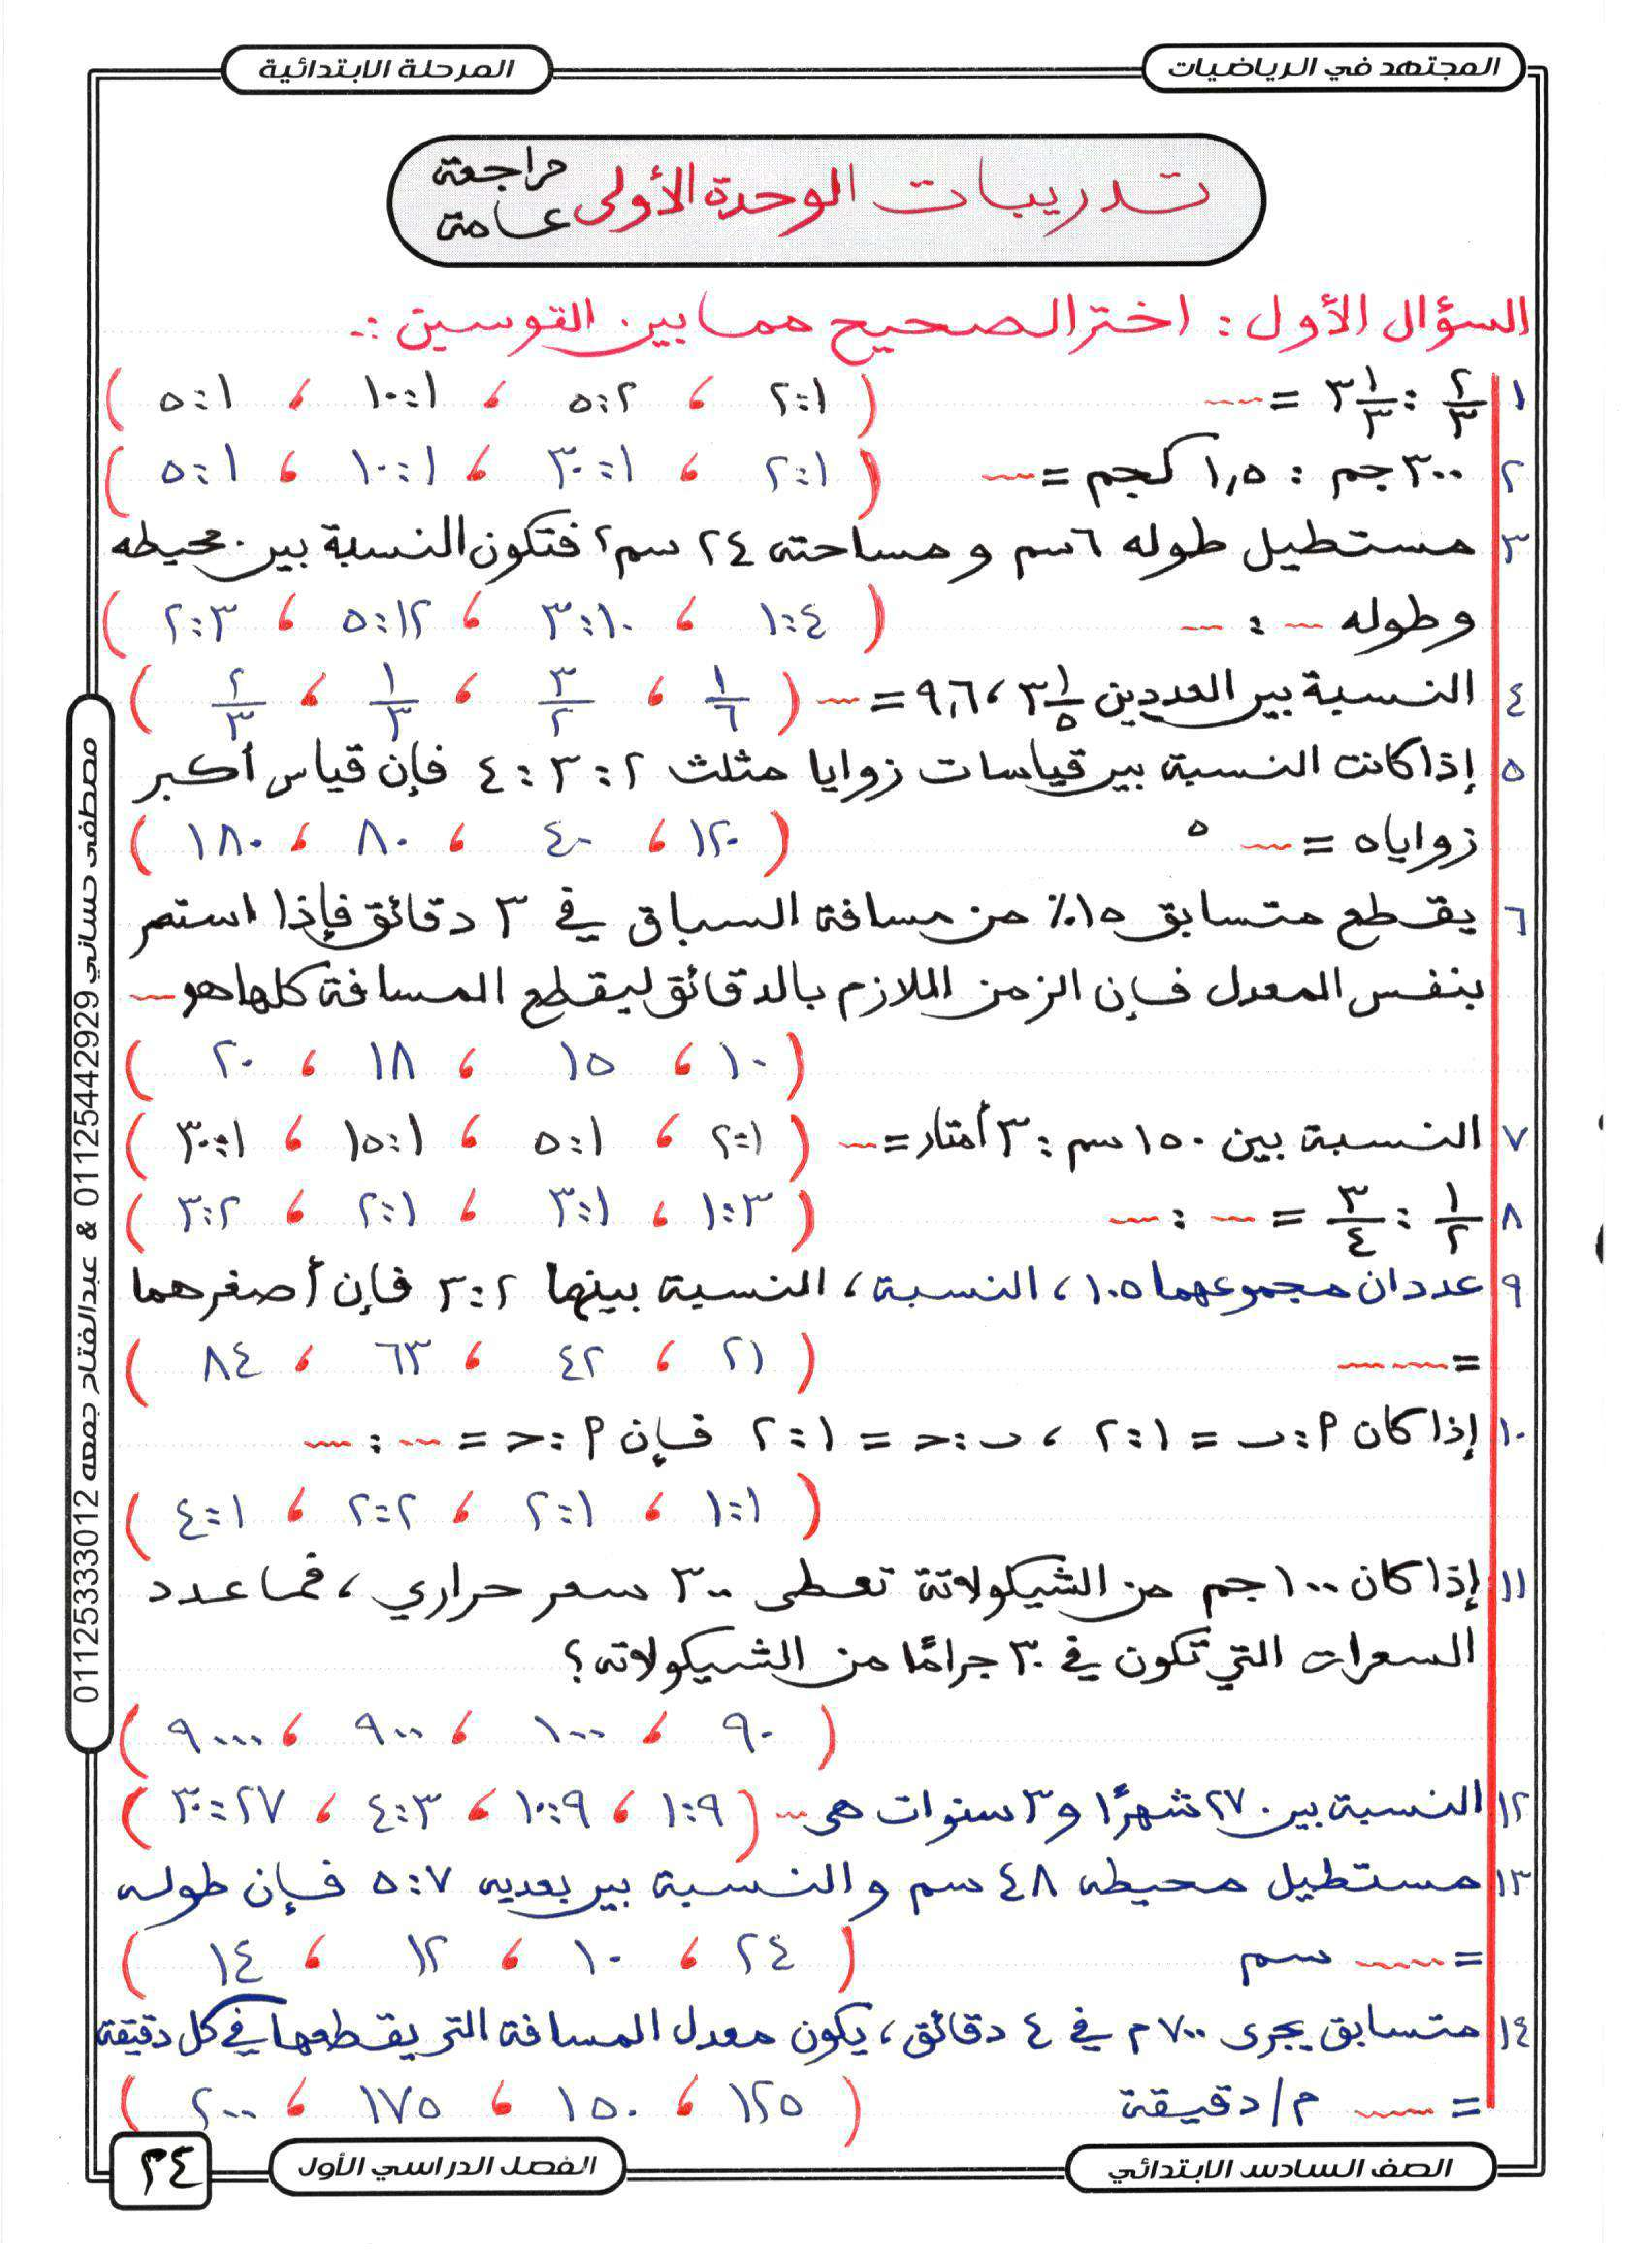 المجتهد في الرياضيات
المرحلة الابتدائية
تدريبات الوحدة الأولى مراجعة عامة
السؤال الأول : اختر الصحيح مما بين القوسين :.
١ ٢/٣ : ٣ ١/٣ = ---- ( ١:٢ ، ٢:٥ ، ١:١٠ ، ١:٥ )
٢ ٣٠٠ جم : ١,٥ كجم = ---- ( ١:٢ ، ١:٣٠ ، ١:١٠ ، ١:٥ )
٣ مستطيل طوله ٦ سم ومساحته ٢٤ سم٢ فتكون النسبة بين محيطه
وطوله --- : --- ( ٤:١ ، ١٠:٣ ، ١٢:٥ ، ٣:٢ )
٤ النسبة بين العددين ٣ ١/٥ ، ٩,٦ = --- ( ١/٦ ، ٣/٢ ، ١/٣ ، ٢/٣ )
٥ إذا كانت النسبة بين قياسات زوايا مثلث ٢ : ٣ : ٤ فإن قياس أكبر
زواياه = --- ° ( ١٢٠ ، ٤٠ ، ٨٠ ، ١٨٠ )
٦ يقطع متسابق ١٥٪ من مسافة السباق في ٣ دقائق فإذا استمر
بنفس المعدل فإن الزمن اللازم بالدقائق ليقطع المسافة كلها هو ---
( ١٠ ، ١٥ ، ١٨ ، ٢٠ )
٧ النسبة بين ١٥٠ سم : ٣ أمتار = --- ( ١:٢ ، ١:٥ ، ١:١٥ ، ١:٣٠ )
٨ ١/٢ : ٣/٤ = --- : --- ( ٣:١ ، ١:٣ ، ١:٢ ، ٢:٣ )
٩ عددان مجموعهما ١٠٥ ، النسبة ، النسبة بينها ٢:٣ فإن أصغرهما
= ------ ( ٢١ ، ٤٢ ، ٦٣ ، ٨٤ )
١٠ إذا كان م:ب = ١:٢ ، ب:ح = ١:٢ فإن م:ح = --- : ---
( ١:١ ، ١:٢ ، ٢:٢ ، ١:٤ )
١١ إذا كان ١٠٠ جم من الشيكولاتة تعطى ٣٠٠ سعر حراري ، فما عدد
السعرات التي تكون في ٣٠ جرامًا من الشيكولاته ؟
( ٩٠ ، ١٠٠ ، ٩٠٠ ، ٩٠٠٠ )
١٢ النسبة بين ٢٧ شهرًا و ٣ سنوات هى --- ( ٩:١ ، ٩:١٠ ، ٣:٤ ، ٢٧:٣٠ )
١٣ مستطيل محيطه ٤٨ سم والنسبة بين بعديه ٧:٥ فإن طوله
= ---- سم ( ٢٤ ، ١٠ ، ١٢ ، ١٤ )
١٤ متسابق يجرى ٧٠٠ م في ٤ دقائق ، يكون معدل المسافة التي يقطعها في كل دقيقة
= ---- م/دقيقة ( ١٢٥ ، ١٥٠ ، ١٧٥ ، ٢٠٠ )
مصطفى حساني 01125442929 & عبدالفتاح جمعه 01125333012
الصف السادس الابتدائي
الفصل الدراسي الأول
٣٤